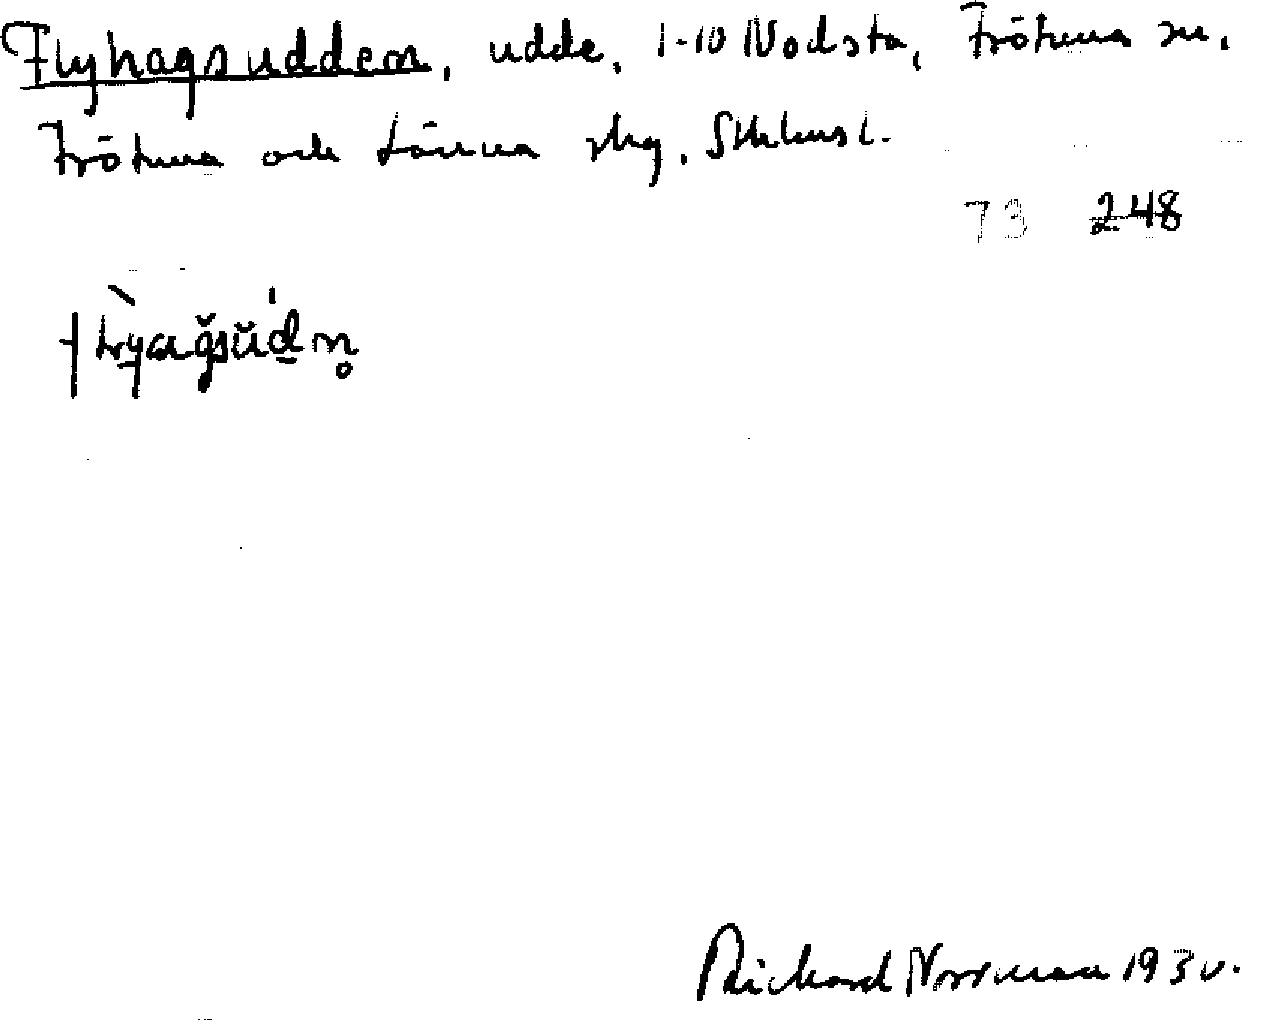 Flyhagsudden, udde, 1-10 Nodsta, Frötuna sn,
Frötuna och Länna skg, Sthlms l.
73 248
Rickard Norrman 1930.